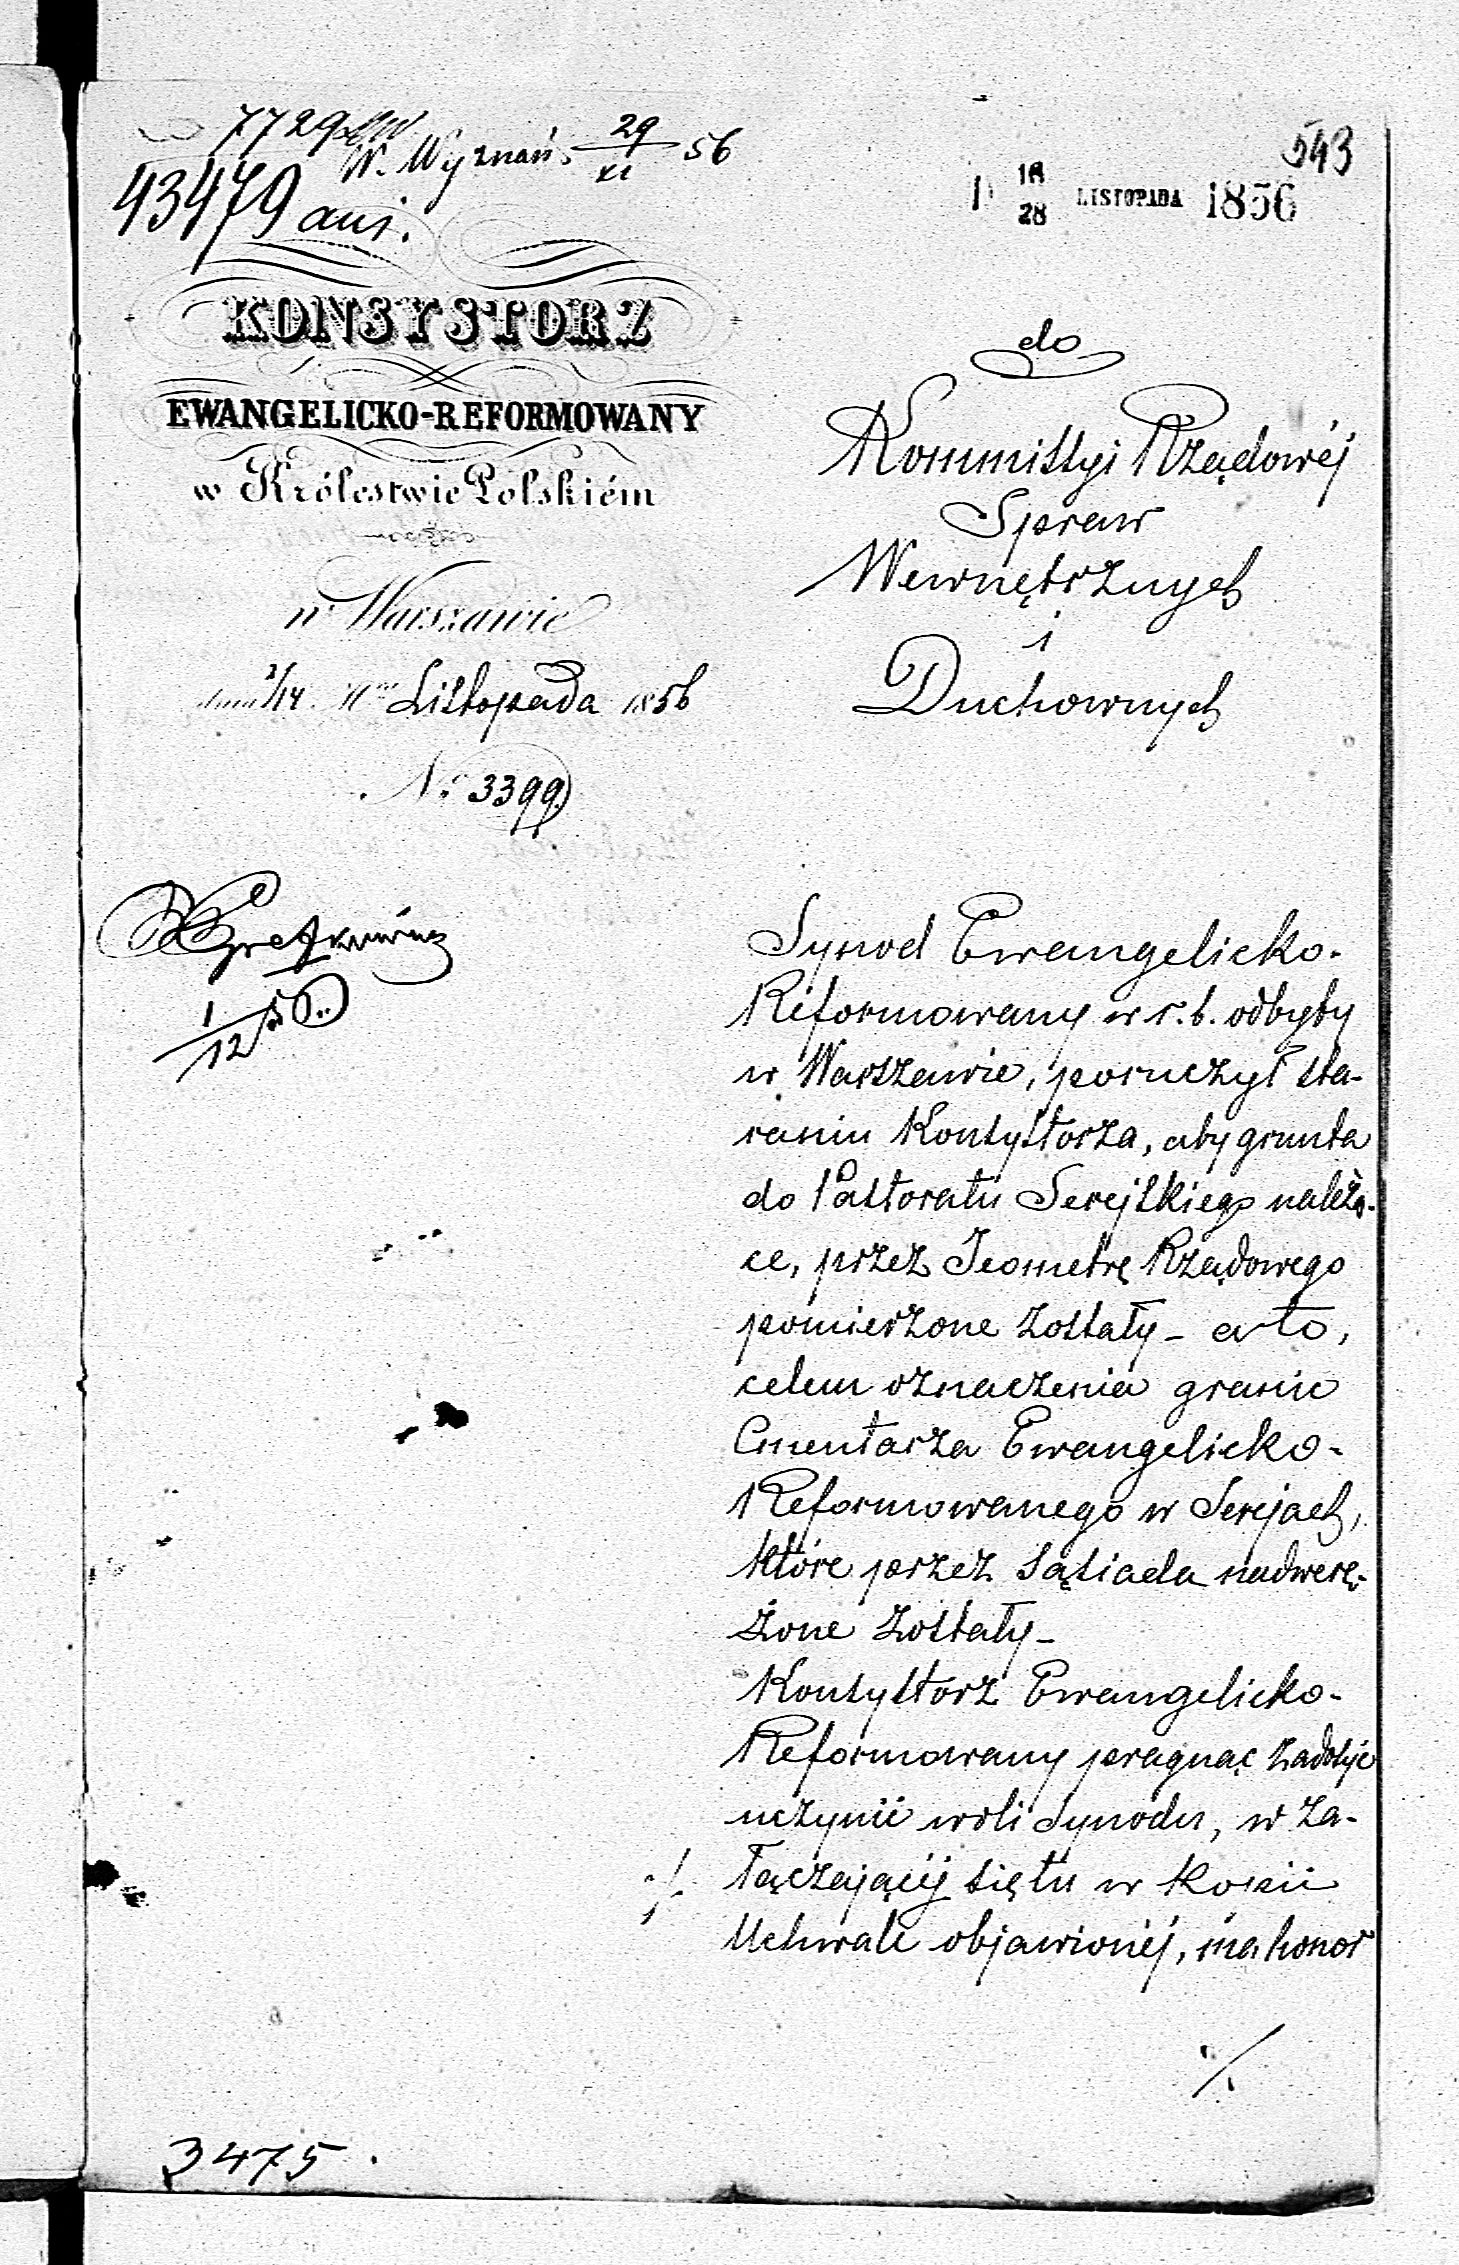 7729
W. Wyznań. 29/XI 56
43479
543
D 16/28 LISTOPADA 1856
KONSYSTORZ
EWANGELICKO-REFORMOWANY
w Królestwie Polskiém
w Warszawie
dnia 2/14 Listopada 1856
No 3399
do
Kommissyi Rządowéj
Spraw
Wewnętrznych
i
Duchownych
1/12 56
Synod Ewangelicko-
Reformowany w r. b. odbyty
w Warszawie, poruczył sta-
raniu Konsystorza, aby grunta
do Pastoratu Serejskiego należą-
ce, przez Jeometrę Rządowego
pomierzone zostały - a to,
celem oznaczenia granic
Cmentarza Ewangelicko-
Reformowanego w Serejach,
które przez sąsiada nadwerę-
żone zostały -
Konsystorz Ewangelicko-
Reformowany pragnąc zadosyć
uczynić woli Synodu, w za-
łączającéj się tu w kopii
Uchwale objawionéj, ma honor
3475.